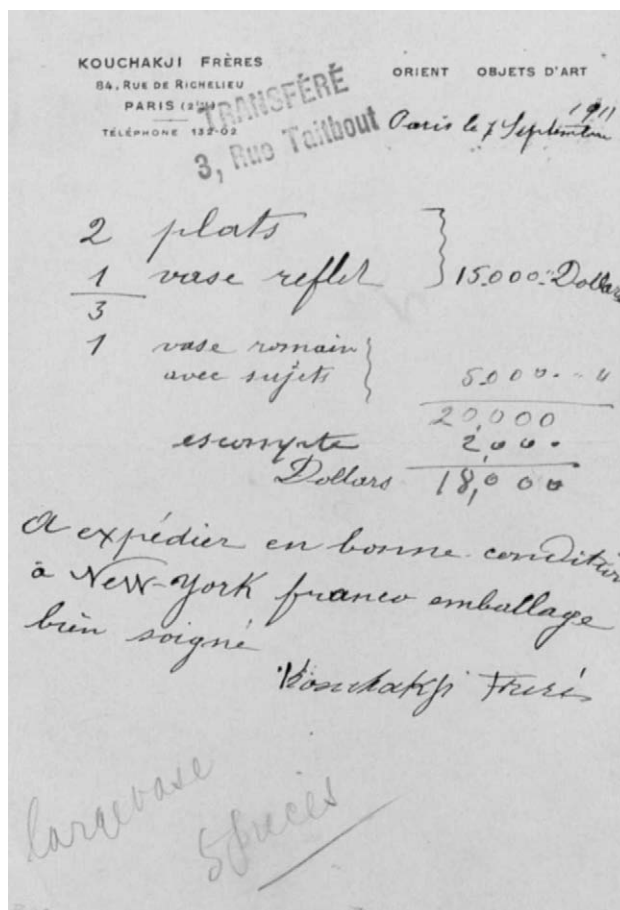 KOUCHAKJI FRÈRES
84, RUE DE RICHELIEU
PARIS (2
TÉLÉPHONE 132-02
TRANSFÉRÉ
3, Rue Taitbout
ORIENT OBJETS D'ART
1911
Paris le 7 Septembre
2 plats
1 vase reflet } 15.000 Dollars
3
1 vase romain
avec sujets } 5000 "
20,000
escompte 2,000
Dollars 18,000
A expédier en bonne condition
à New-York franco emballage
bien soigné
Kouchakji Frères
large vase
5 pieces